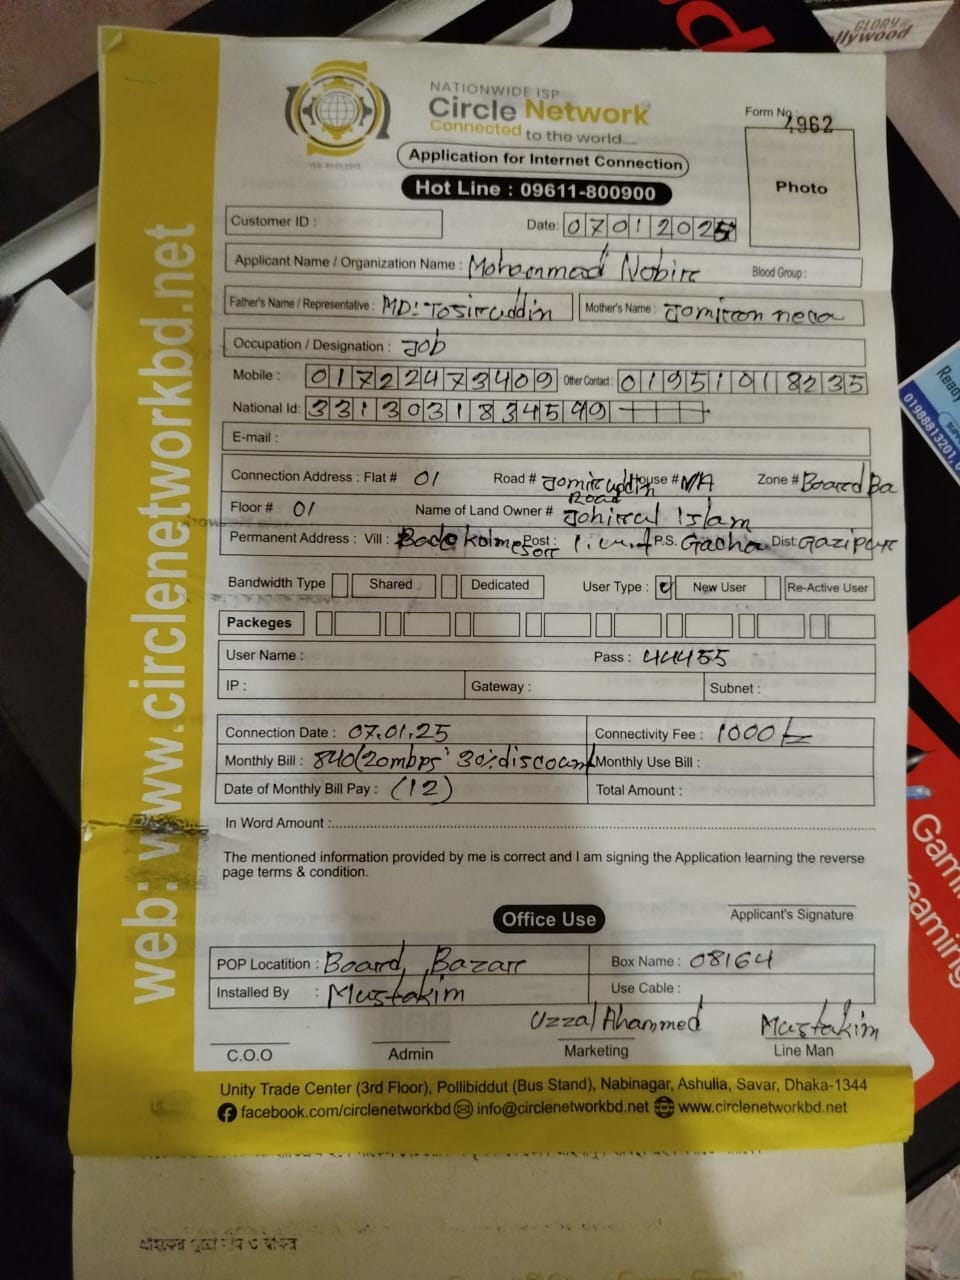 GLORY
ollywood
NATIONWIDE ISP
Circle Network
Connected to the world....
ISO 9001:2015
Form No. 4962
Application for Internet Connection
Hot Line : 09611-800900
Photo
Customer ID :
Date: 07012025
Applicant Name / Organization Name : Mohammad Nobire Blood Group :
Father's Name / Representative : MD: Tosiruddin Mother's Name : Jomiron nesa
Occupation / Designation : Job
Mobile : 01722473409 Other Contact : 01951018235
National Id: 3313031834599
E-mail :
Connection Address : Flat # 01 Road # Jomiruddin Road House # N/A Zone # Board Ba
Floor # 01 Name of Land Owner # Johirul Islam
Permanent Address : Vill : Post : P.S. Gacha Dist: Gazipur
Bandwidth Type Shared Dedicated User Type : New User Re-Active User
Packeges
User Name : Pass : 44455
IP : Gateway : Subnet :
Connection Date : 07.01.25 Connectivity Fee : 1000
Monthly Bill : 840(20mbps 30% discount Monthly Use Bill :
Date of Monthly Bill Pay : (12) Total Amount :
In Word Amount :
The mentioned information provided by me is correct and I am signing the Application learning the reverse
page terms & condition.
Applicant's Signature
Office Use
POP Locatition : Board Bazar Box Name : 08164
Installed By : Mustakim Use Cable :
Uzzal Ahammed Mustakim
C.O.O Admin Marketing Line Man
Unity Trade Center (3rd Floor), Pollibiddut (Bus Stand), Nabinagar, Ashulia, Savar, Dhaka-1344
facebook.com/circlenetworkbd info@circlenetworkbd.net www.circlenetworkbd.net
web: www.circlenetworkbd.net
Ready
01988813201,